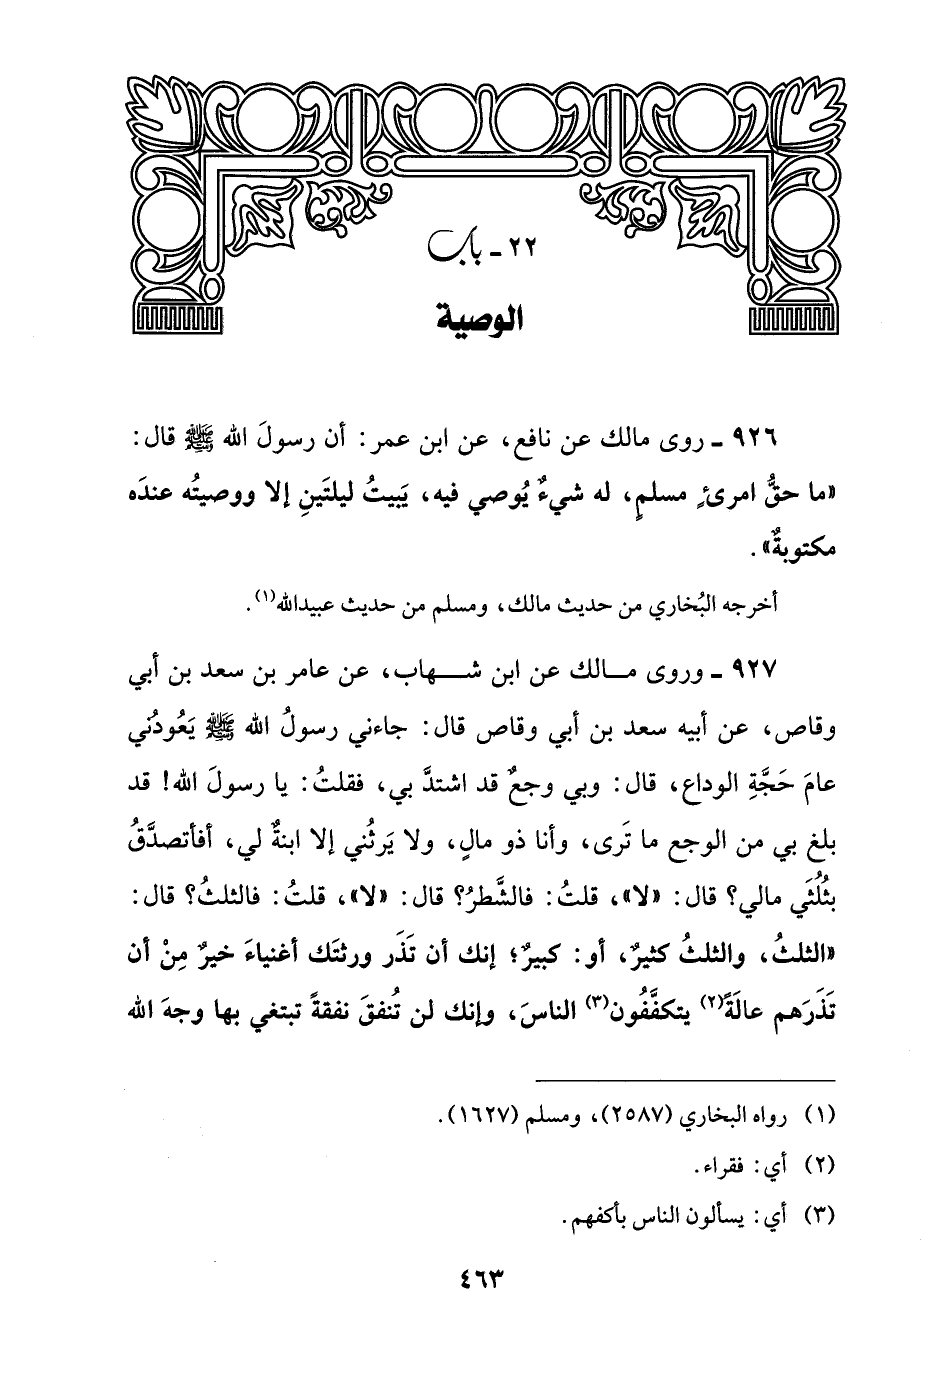 ٢٢ - باب
الوصية
٩٢٦ - روى مالك عن نافع، عن ابن عمر: أن رسولَ الله ﷺ قال:
«ما حقُّ امرئٍ مسلمٍ، له شيءٌ يُوصي فيه، يَبيتُ ليلتَينِ إلا ووصيتُه عندَه
مكتوبةٌ».
أخرجه البُخاري من حديث مالك، ومسلم من حديث عبيدالله(١).
٩٢٧ - وروى مالك عن ابن شهاب، عن عامر بن سعد بن أبي
وقاص، عن أبيه سعد بن أبي وقاص قال: جاءني رسولُ الله ﷺ يَعُودُني
عامَ حَجَّةِ الوداع، قال: وبي وجعٌ قد اشتدَّ بي، فقلتُ: يا رسولَ الله! قد
بلغ بي من الوجع ما تَرى، وأنا ذو مالٍ، ولا يَرثُني إلا ابنةٌ لي، أفأتصدَّقُ
بثُلُثَي مالي؟ قال: «لا»، قلتُ: فالشَّطرُ؟ قال: «لا»، قلتُ: فالثلثُ؟ قال:
«الثلثُ، والثلثُ كثيرٌ، أو: كبيرٌ؛ إنك أن تَذَر ورثتَك أغنياءَ خيرٌ مِنْ أن
تَذَرَهم عالَةً(٢) يتكفَّفُون(٣) الناسَ، وإنك لن تُنفقَ نفقةً تبتغي بها وجهَ الله
(١) رواه البخاري (٢٥٨٧)، ومسلم (١٦٢٧).
(٢) أي: فقراء.
(٣) أي: يسألون الناس بأكفهم.
٤٦٣